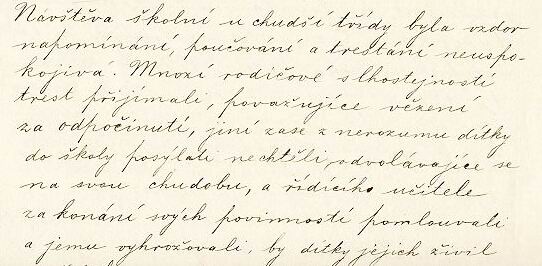 Návštěva školní u chudší třídy byla vzdor
napomínání, poučování a trestání neuspo-
kojivá. Mnozí rodičové s lhostejností
trest přijímali, považujíce vězení
za odpočinutí, jiní zase z nerozumu dítky
do školy posýlati nechtěli, odvolávajíce se
na svou chudobu, a řídícího učitele
za konání svých povinností pomlouvali
a jemu vyhrožovali, by dítky jejich živil